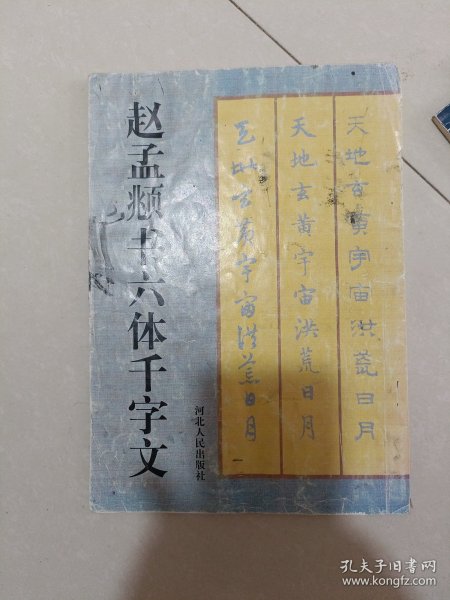 赵孟頫书六体千字文
河北人民出版社
天地玄黄宇宙洪荒日月
天地玄黄宇宙洪荒日月
天地玄黄宇宙洪荒日月
孔夫子旧书网
www.kongfz.com